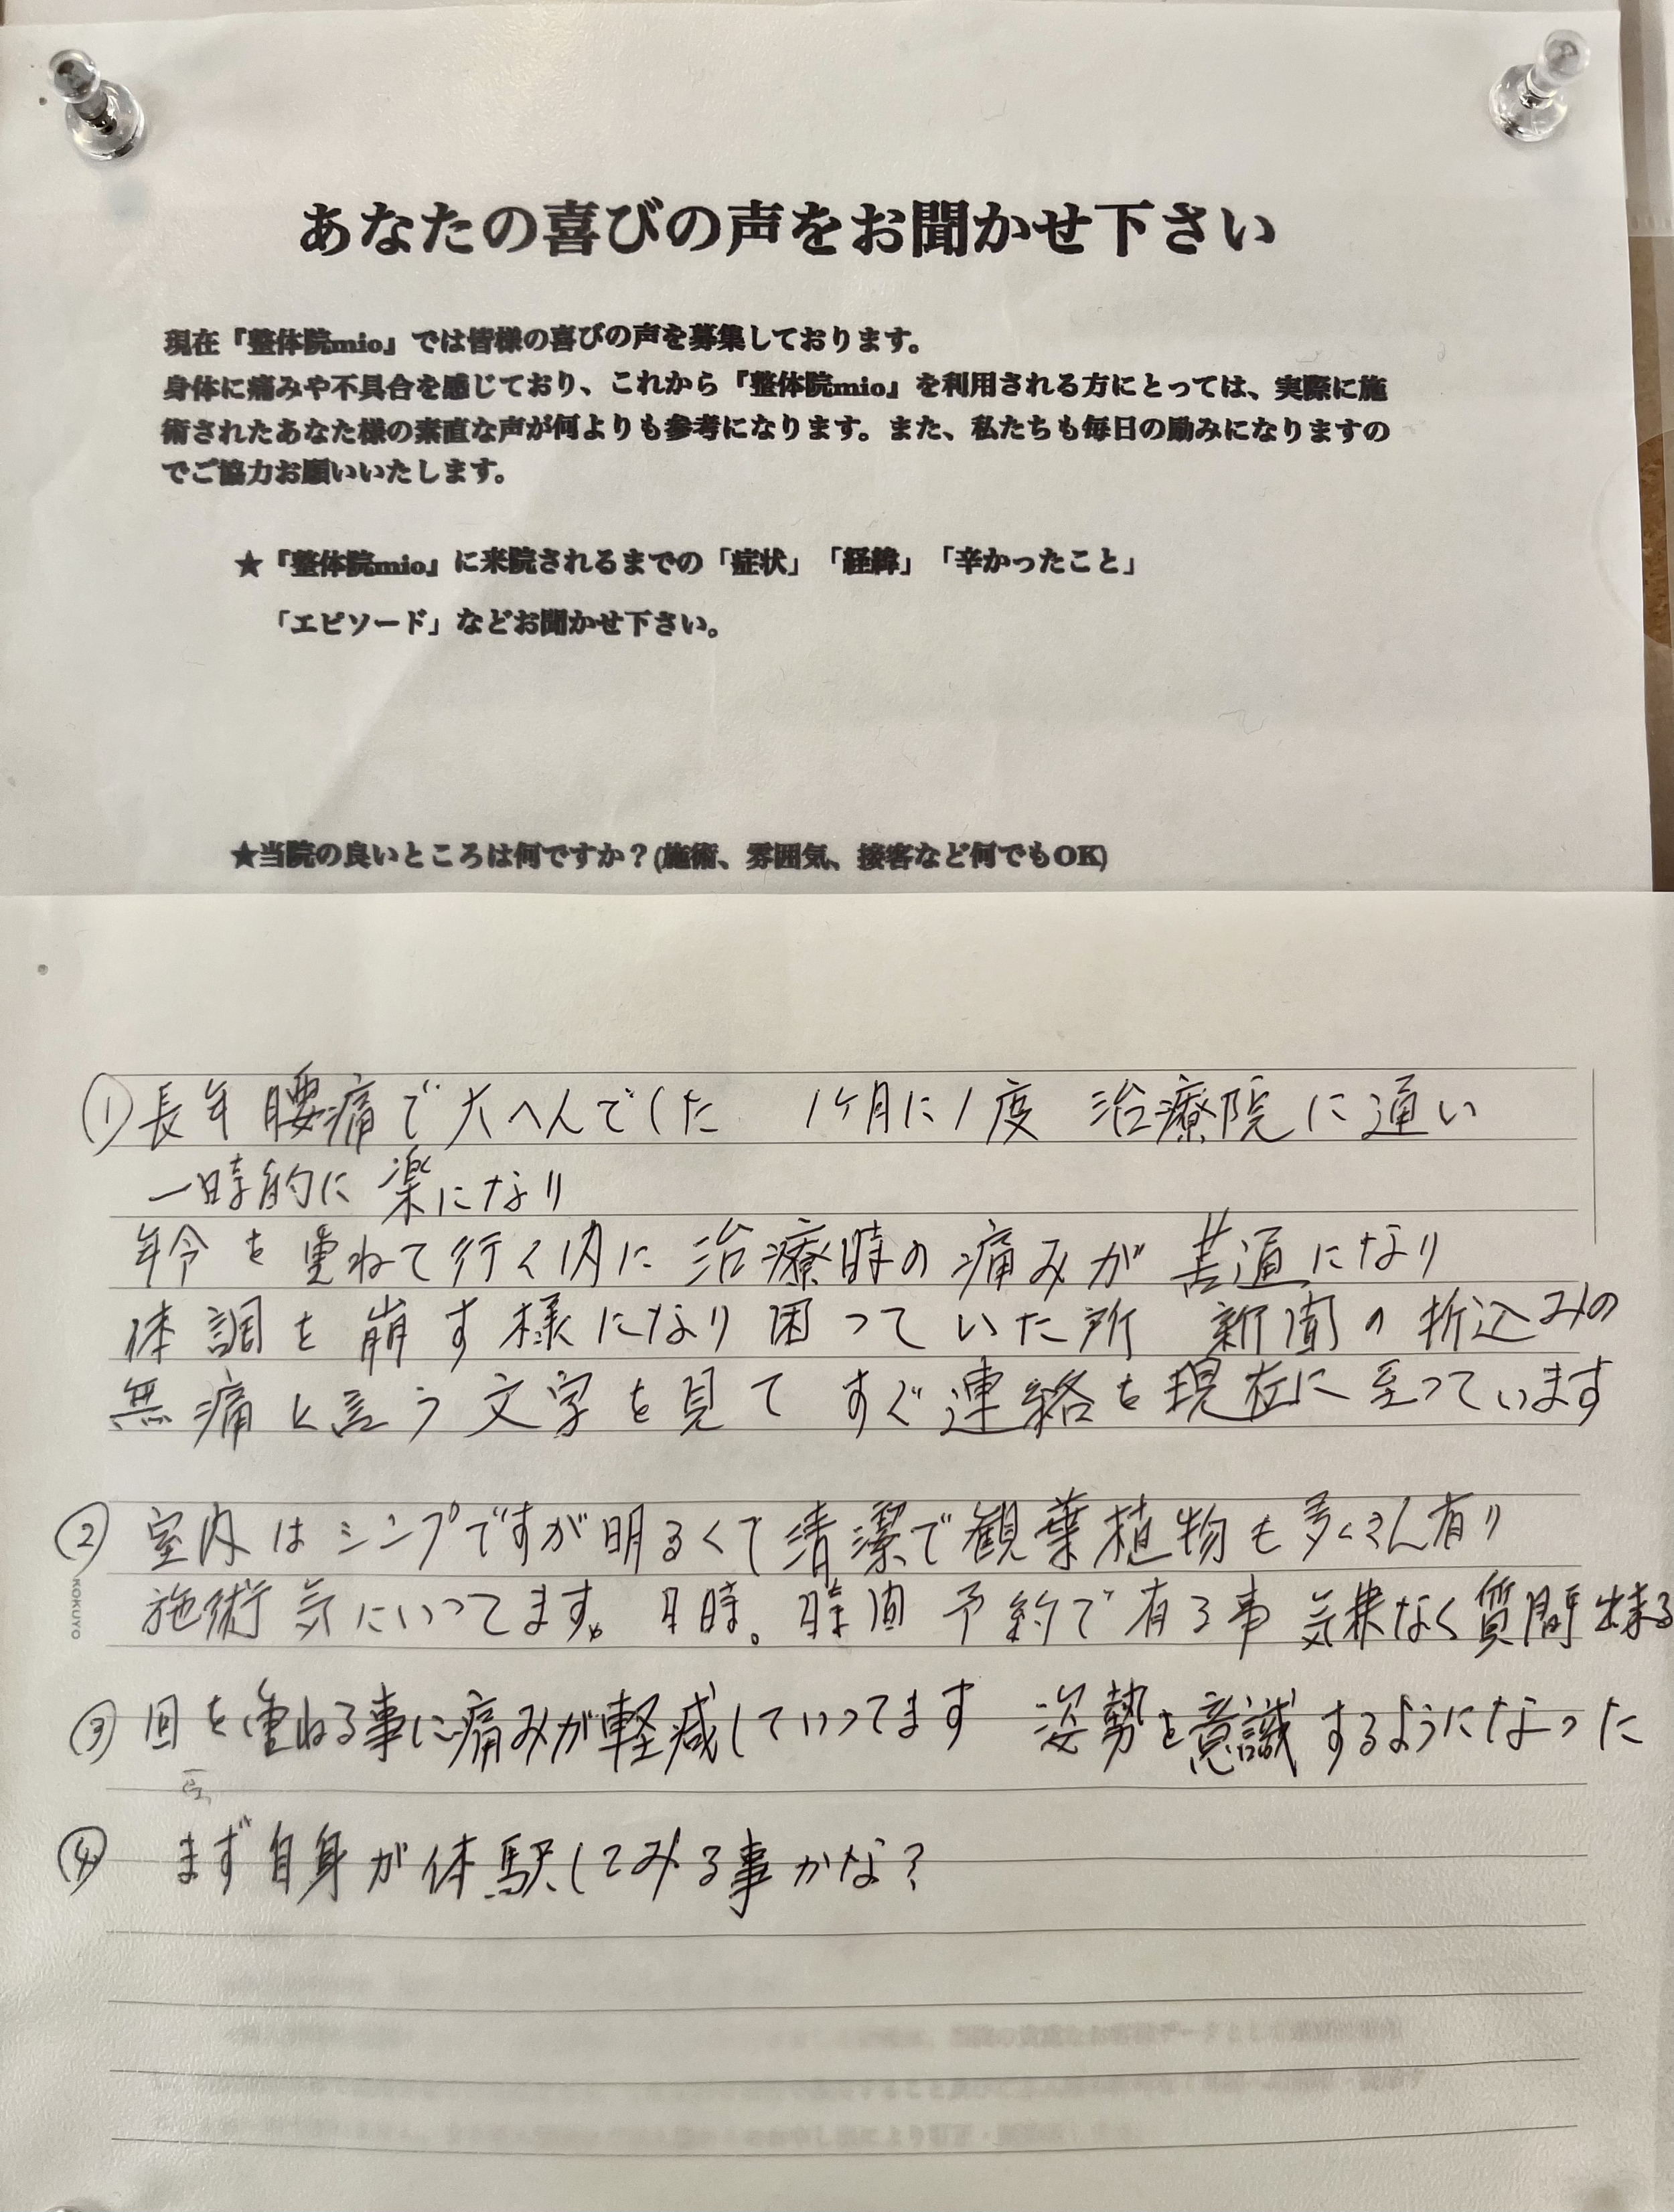 あなたの喜びの声をお聞かせ下さい
現在『整体院mio』では皆様の喜びの声を募集しております。
身体に痛みや不具合を感じており、これから『整体院mio』を利用される方にとっては、実際に施
術されたあなた様の素直な声が何よりも参考になります。また、私たちも毎日の励みになりますの
でご協力お願いいたします。
★『整体院mio』に来院されるまでの「症状」「経緯」「辛かったこと」
「エピソード」などお聞かせ下さい。
★当院の良いところは何ですか？(施術、雰囲気、接客など何でもOK)
①長年腰痛で大へんでした 1ヶ月に1度 治療院に通い
一時的に楽になり
年令を重ねて行く内に治療時の痛みが苦痛になり
体調を崩す様になり困っていた所 新聞の折込みの
無痛と言う文字を見て すぐ連絡を現在に至っています
② 室内はシンプですが明るくて清潔で観葉植物も多くさん有り
施術気にいってます。日時。時間 予約で有る事 気楽なく質問出来る
KOKUYO
③ 回を重ねる事に痛みが軽減していってます 姿勢を意識するようになった
④ まず自身が体験してみる事かな？